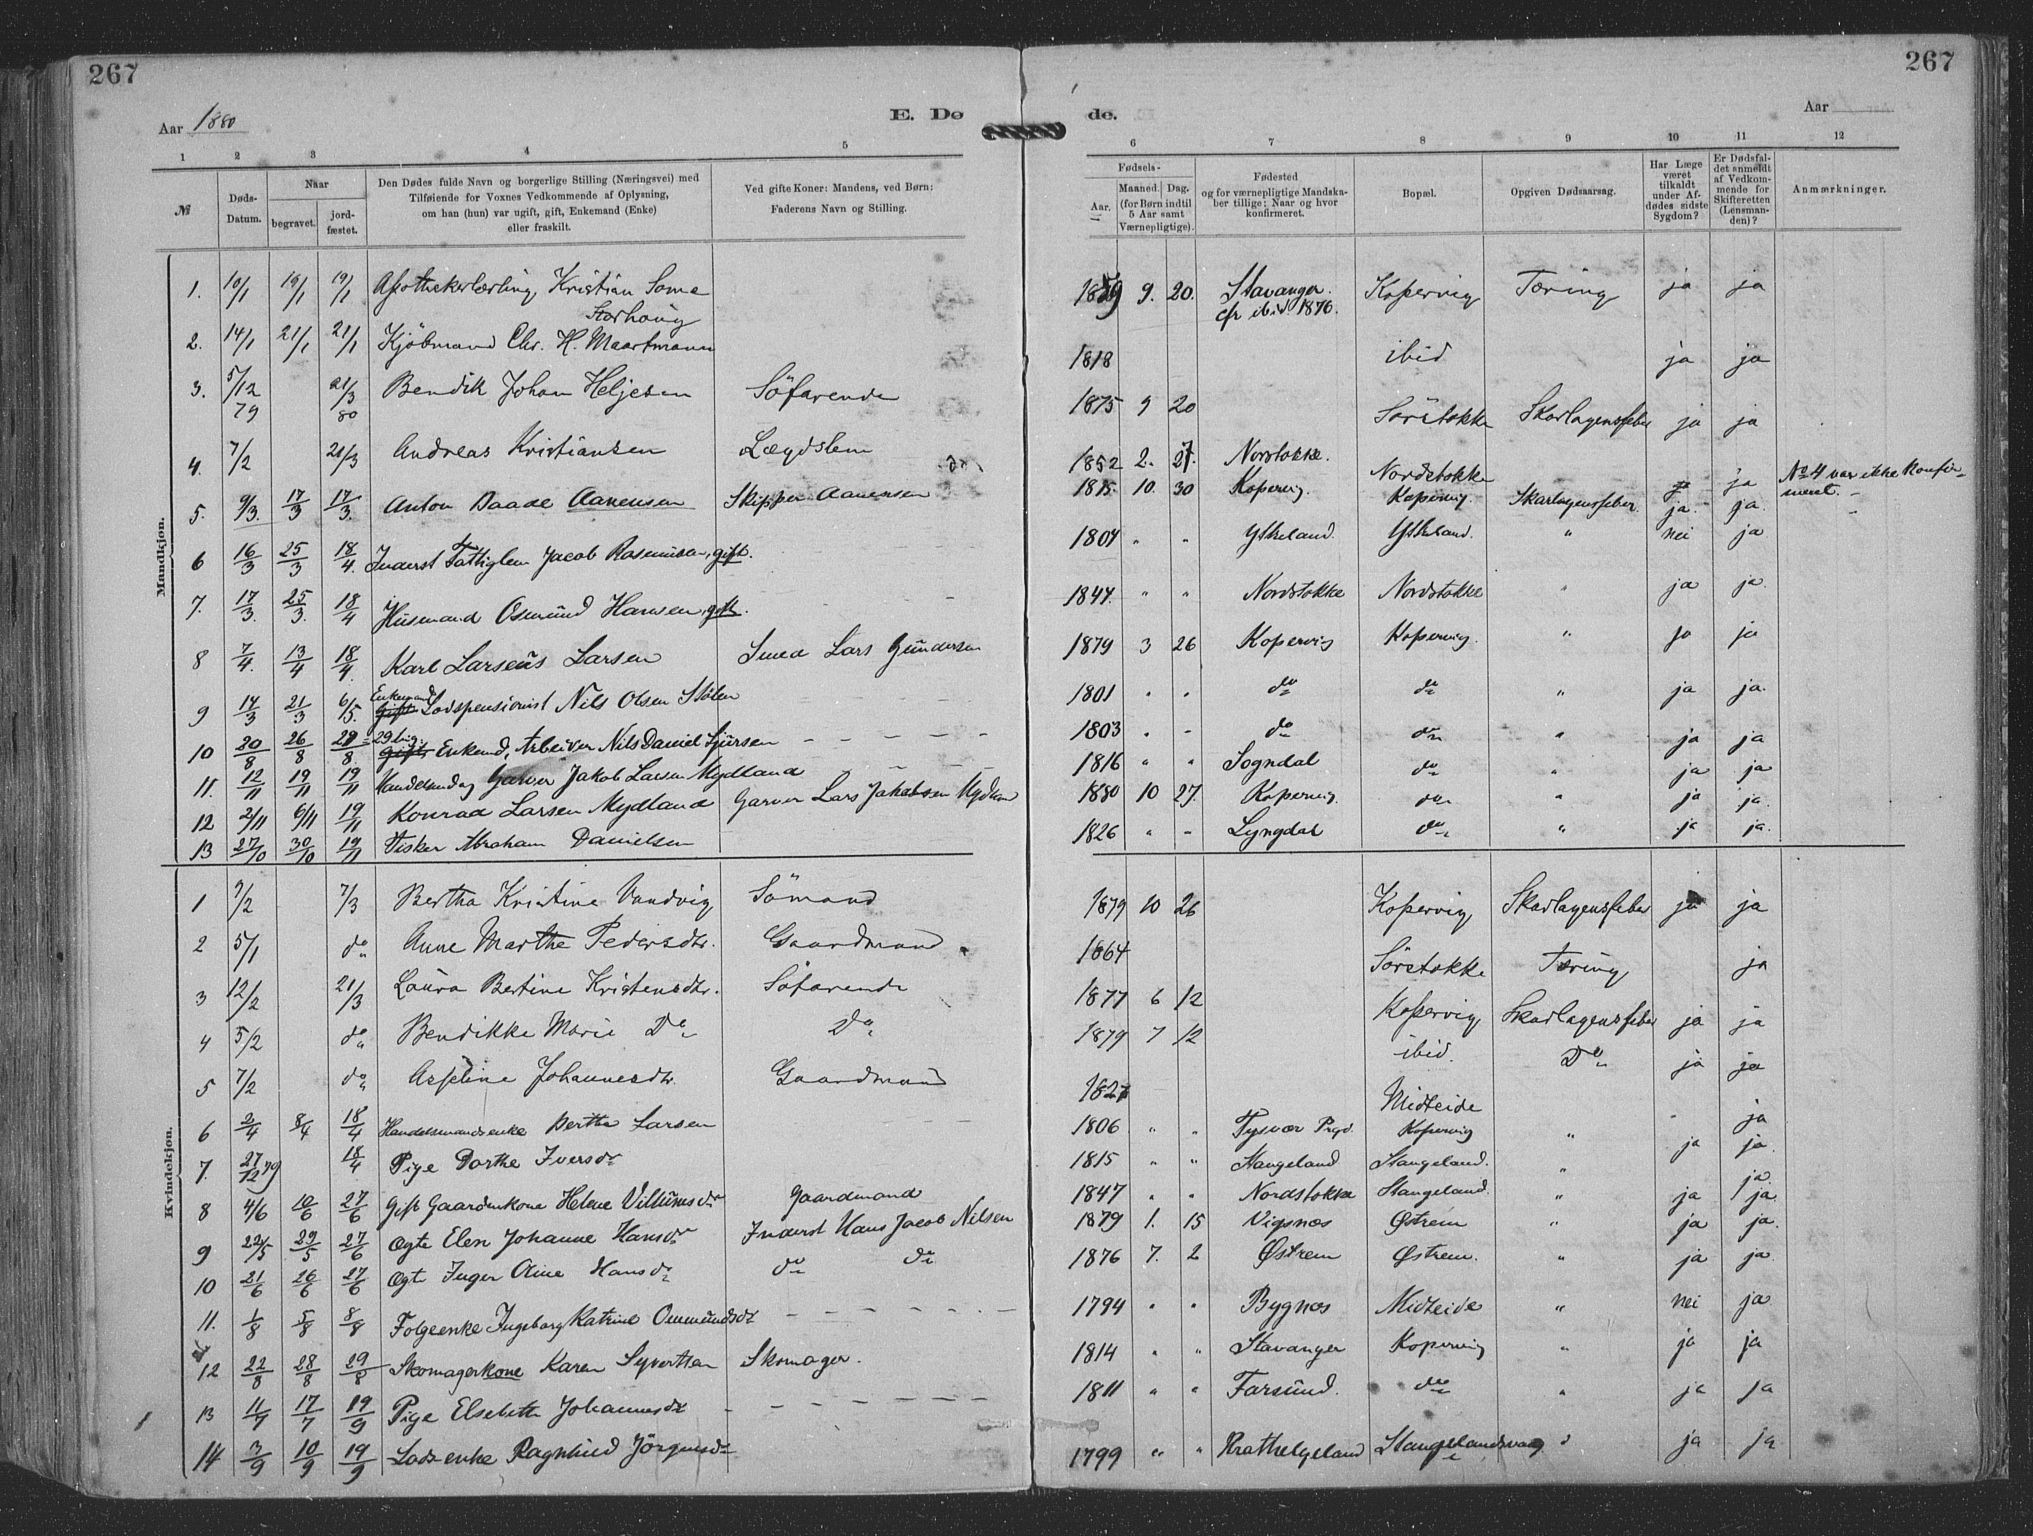 267
267
Aar 1880
E. Dø
de.
Aar
1 2 3 4 5
6 7 8 9 10 11 12
№
Døds-Datum.
Naar
begravet.
jordfæstet.
Den Dødes fulde Navn og borgerlige Stilling (Næringsvei) med
Tilføiende for Voxnes Vedkommende af Oplysning,
om han (hun) var ugift, gift, Enkemand (Enke)
eller fraskilt.
Ved gifte Koner: Mandens, ved Børn:
Faderens Navn og Stilling.
Fødsels-
Aar.
Maaned. Dag.
(for Børn indtil
5 Aar samt
Værnepligtige).
Fødested
og for værnepligtige Mandskaber
tillige: Naar og hvor
konfirmeret.
Bopæl.
Opgiven Dødsaarsag.
Har Læge
været
tilkaldt
under Afdødes
sidste
Sygdom?
Er Dødsfaldet
anmeldt
af Vedkommende
for
Skifteretten
(Lensmanden)?
Anmærkninger.
Mandkjøn.
1. 10/1 16/1 19/1 Apothekerlærling, Kristian Some Storhoug 9. 20. Stavanger. cfr ibid. 1876. Kopervig Tæring ja ja
2. 14/1 21/1 21/1 Kjöbmand Chr. H. Maartmann 1818 ibid ja ja
3. 5/12 79 21/3 80 Bendik Johan Heljesen Söfarende 1875 9 20 Sörstokke Skarlagensfeber ja ja
4. 7/2 21/3 Andreas Kristiansen Lægdslem 1852 2. 27. Norstokke. Nordstokke ja ja No 4 var ikke konfirmeret.
5. 9/3. 17/3 17/3. Anton Baade Aanensen Skipper Aanensen 1875. 10. 30 Kopervig. Kopervig. Skarlagensfeber. ja. ja.
6 16/3 25/3 18/4. Inderst Fattiglem Jacob Rasmussen, gift. 1804 " " Ytreland. Ytreland. " nei ja
7. 17/3. 25/3. 18/4 Husmand Osmund Hansen, gift. 1847. " " Nordstokke Nordstokke " ja ja
8 7/4. 13/4 18/4. Karl Larsens Larsen Smed Lars Gundersen 1879 3 26 Kopervig Kopervig. " ja ja
9 14/3 21/3 6/5. Enkemand Lodspensionist Nils Olsen Stølen 1801 " " do do " ja ja.
10 20/8 26/8 29/8 Enkemd, Arbeider Nils Daniel Sjursen 1803 " " do do " ja ja
11. 12/11 19/11 19/11 Handelsmd og Garver Jakob Larsen Mydland 1816 " " Sogndal do " ja ja
12 2/11 6/11 19/11 Konrad Larsen Mydland Garver Lars Jakobsen Mydland 1880 10 27. Kopervig. do " ja ja.
13 27/10 30/10 19/11 Fisker Abraham Danielsen 1826 " " Lyngdal do " ja ja.
Kvindekjøn.
1 7/2 7/3 Bertha Kristine Vandvig Sömand 1879 10 26 Kopervig Skarlagensfeber ja ja
2 5/1 do Anne Marthe Pedersdtr. Gaardmand 1864 Sörstokke Tæring ja
3 12/2 21/3 Laura Bertine Kristensdtr. Söfarende 1877 6 12 Kopervig Skarlagensfeber ja ja
4 5/2 do Bendikke Marie Do Do 1879 7 12 ibid. Do ja ja
5 7/2 do Aspeline Johannesdtr. Gaardmand Midteide ja
6 2/4 8/4 18/4 Handelsmandsenke Berthe Larsen 1806 " " Tysvær Prgd. Kopervig " ja ja.
7. 27/12 79 18/4 Pige Dorthe Iversdr 1815 " " Stangeland Stangeland. " ja.
8 4/6 10/6 27/6 Gift Gaardmkone Helene Villumsdr Gaardmand 1847 " " Nordstokke Stangeland. " ja ja.
9 22/5 29/5 27/6 Ægte Elen Johanne Hansdr Inderst Hans Jacob Nilsen 1879 1. 15 Vigsnæs Østrem " ja ja.
10 21/6 26/6 27/6 Ægt Inger Oline Hansdr do do 1876 7. 2 Østrem Østrem. " ja ja.
11. 1/8 5/8 8/8 Folgeenke Ingeborg Katrine Ommundsdr 1794 " " Bygnes Midteide " nei ja
12 22/8 28/8 29/8 Skomagerkone Karen Syvertsen Skomager. 1814 " " Stavanger Kopervig " ja ja
13 11/7 17/7 19/9 Pige Elsebeth Johannesdr 1811 " " Farsund. do " ja ja
14 3/9 10/9 19/9 Lods-enke Ragnhild Jörgensdr 1799 " " Hrathelgeland Stangelandsvaag " ja ja